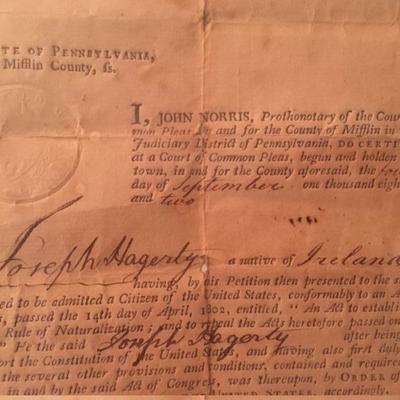 TE OF PENNSYLVANIA,
Mifflin County, ſs.
I, JOHN NORRIS, Prothonotary of the Cour
mon Pleas in and for the County of Mifflin in the
Judiciary District of Pennsylvania, DO CERTI
at a Court of Common Pleas, begun and holden
town, in and for the County aforesaid, the
day of September one thousand eigh
and two
Joseph Hagerty a native of Ireland
having, by his Petition then presented to the s
ed to be admitted a Citizen of the United States, conformably to an A
s, passed the 14th day of April, 1802, entitled, " An Act to establi
Rule of Naturalization; and to repeal the Acts heretofore passed on
" He the said Joseph Hagerty after being
ort the Constitution of the United States, and having also first duly
the several other provisions and conditions, contained and require
in and by the said Act of Congress, was thereupon, by ORDER of
UNITED STATES, accordingly.